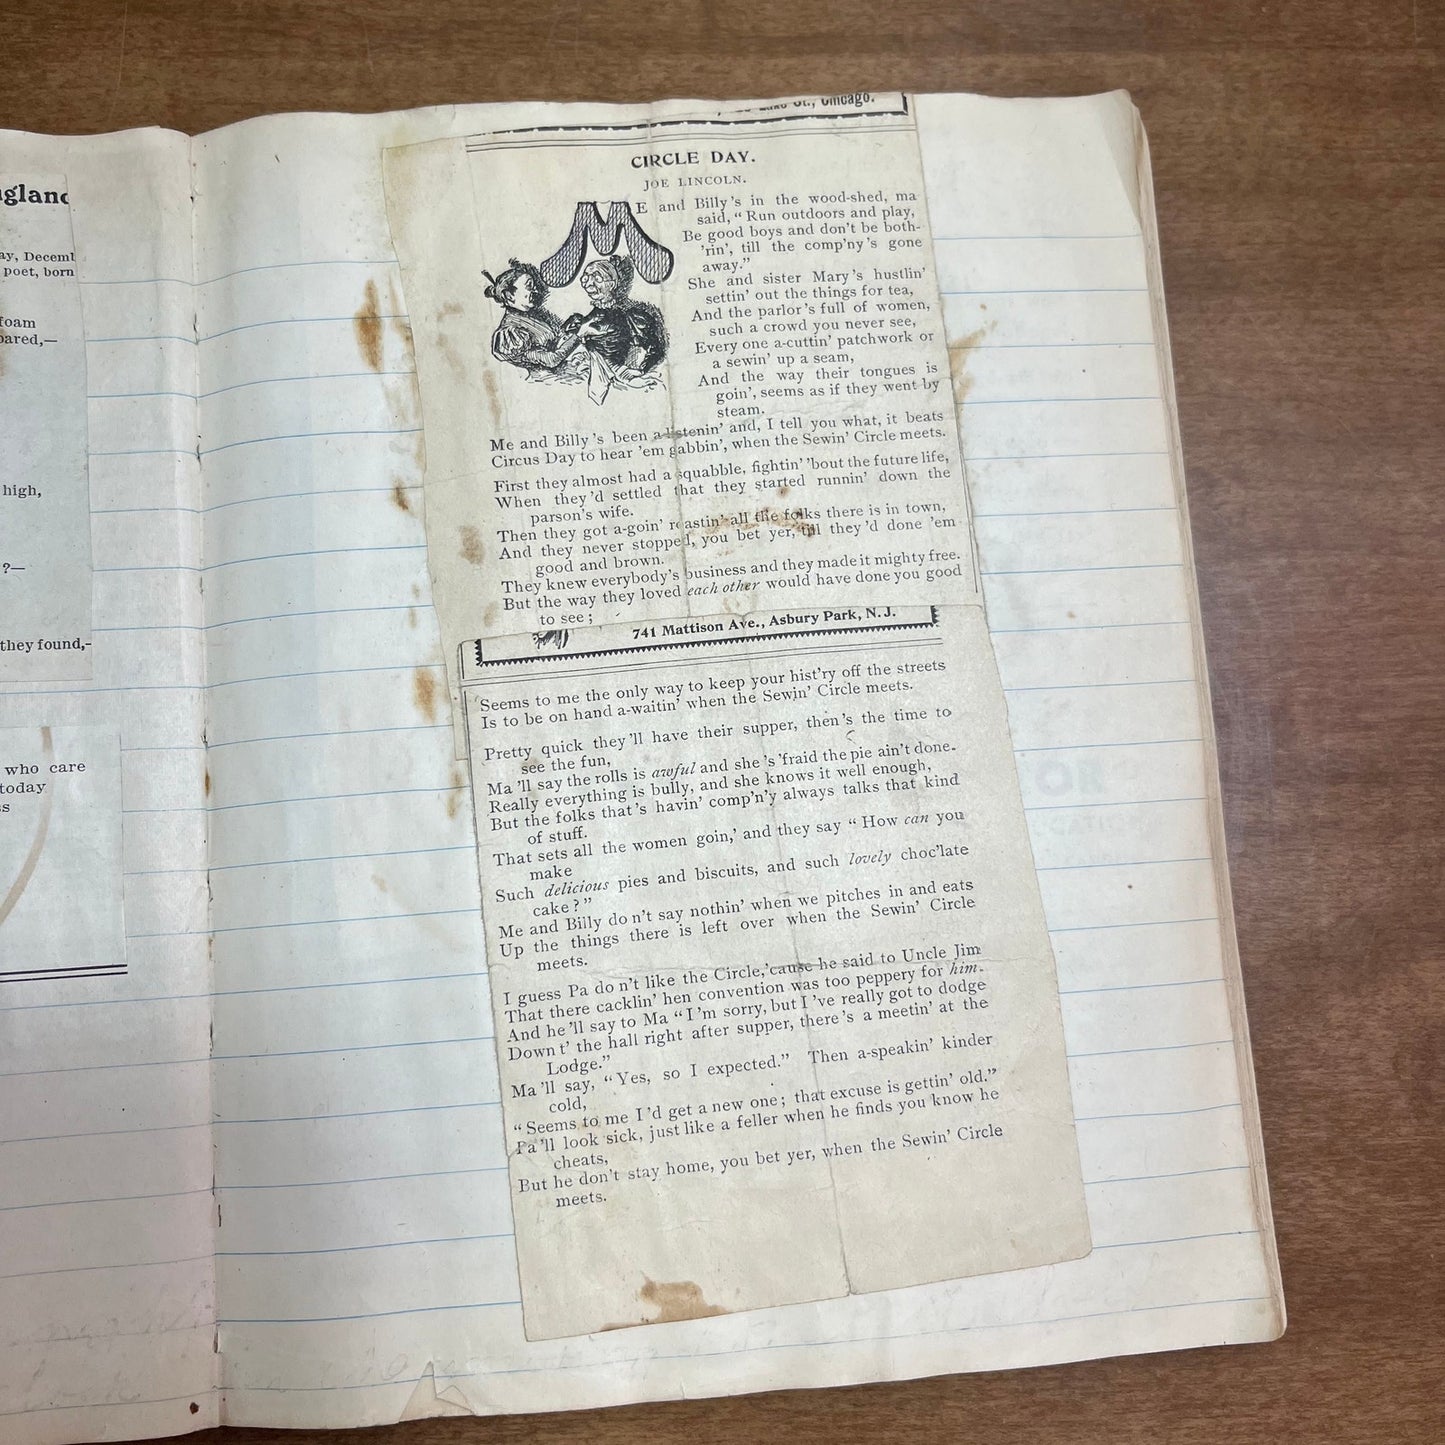 ay, Decemb
poet, born
foam
pared,—
high,
?—
they found,-
who care
today
St., Chicago.
CIRCLE DAY.
JOE LINCOLN.
ME and Billy's in the wood-shed, ma
said, "Run outdoors and play,
Be good boys and don't be both-
'rin', till the comp'ny's gone
away."
She and sister Mary's hustlin'
settin' out the things for tea,
And the parlor's full of women,
such a crowd you never see,
Every one a-cuttin' patchwork or
a sewin' up a seam,
And the way their tongues is
goin', seems as if they went by
steam.
Me and Billy's been a-listenin' and, I tell you what, it beats
Circus Day to hear 'em gabbin', when the Sewin' Circle meets.
First they almost had a squabble, fightin' 'bout the future life,
When they'd settled that they started runnin' down the
parson's wife.
Then they got a-goin' roastin' all the folks there is in town,
And they never stopped, you bet yer, till they'd done 'em
good and brown.
They knew everybody's business and they made it mighty free.
But the way they loved each other would have done you good
to see;
741 Mattison Ave., Asbury Park, N. J.
Seems to me the only way to keep your hist'ry off the streets
Is to be on hand a-waitin' when the Sewin' Circle meets.
Pretty quick they'll have their supper, then's the time to
see the fun,
Ma'll say the rolls is awful and she's 'fraid the pie ain't done.
Really everything is bully, and she knows it well enough,
But the folks that's havin' comp'n'y always talks that kind
of stuff.
That sets all the women goin,' and they say "How can you
make
Such delicious pies and biscuits, and such lovely choc'late
cake?"
Me and Billy don't say nothin' when we pitches in and eats
Up the things there is left over when the Sewin' Circle
meets.
I guess Pa don't like the Circle,'cause he said to Uncle Jim
That there cacklin' hen convention was too peppery for him.
And he'll say to Ma "I'm sorry, but I've really got to dodge
Down t' the hall right after supper, there's a meetin' at the
Lodge."
Ma'll say, "Yes, so I expected." Then a-speakin' kinder
cold,
"Seems to me I'd get a new one; that excuse is gettin' old."
Pa'll look sick, just like a feller when he finds you know he
cheats,
But he don't stay home, you bet yer, when the Sewin' Circle
meets.